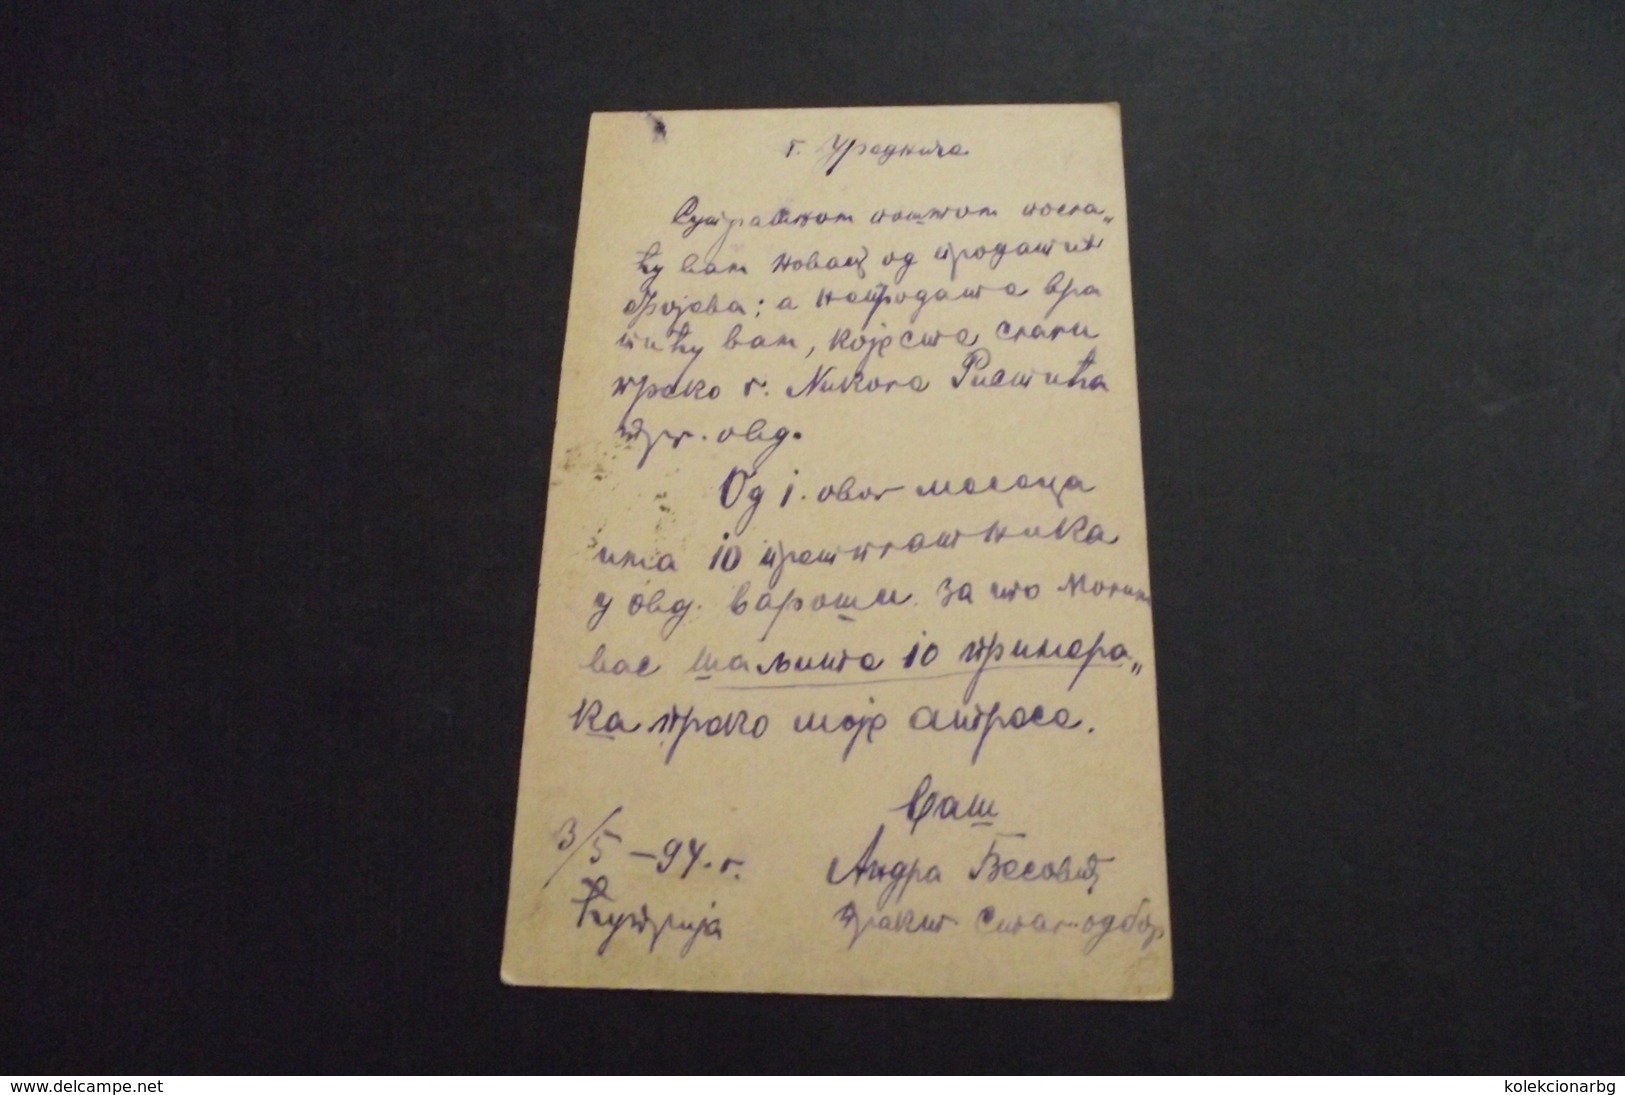 г. Уредниче
Сутрашњом поштом посла„
ћу вам новац од продатих
бројева; а непродате вра
тићу вам, које сте слали
преко г. Николе Ристића
трг. овд.
Од 1. овог месеца
има 10 претплатника
у овд. вароши. за што молим
вас шаљите 10 примера„
ка преко моје адресе.
Ваш
3/5 –94. г.
Андра
Ћуприја
www.delcampe.net
kolekcionarbg